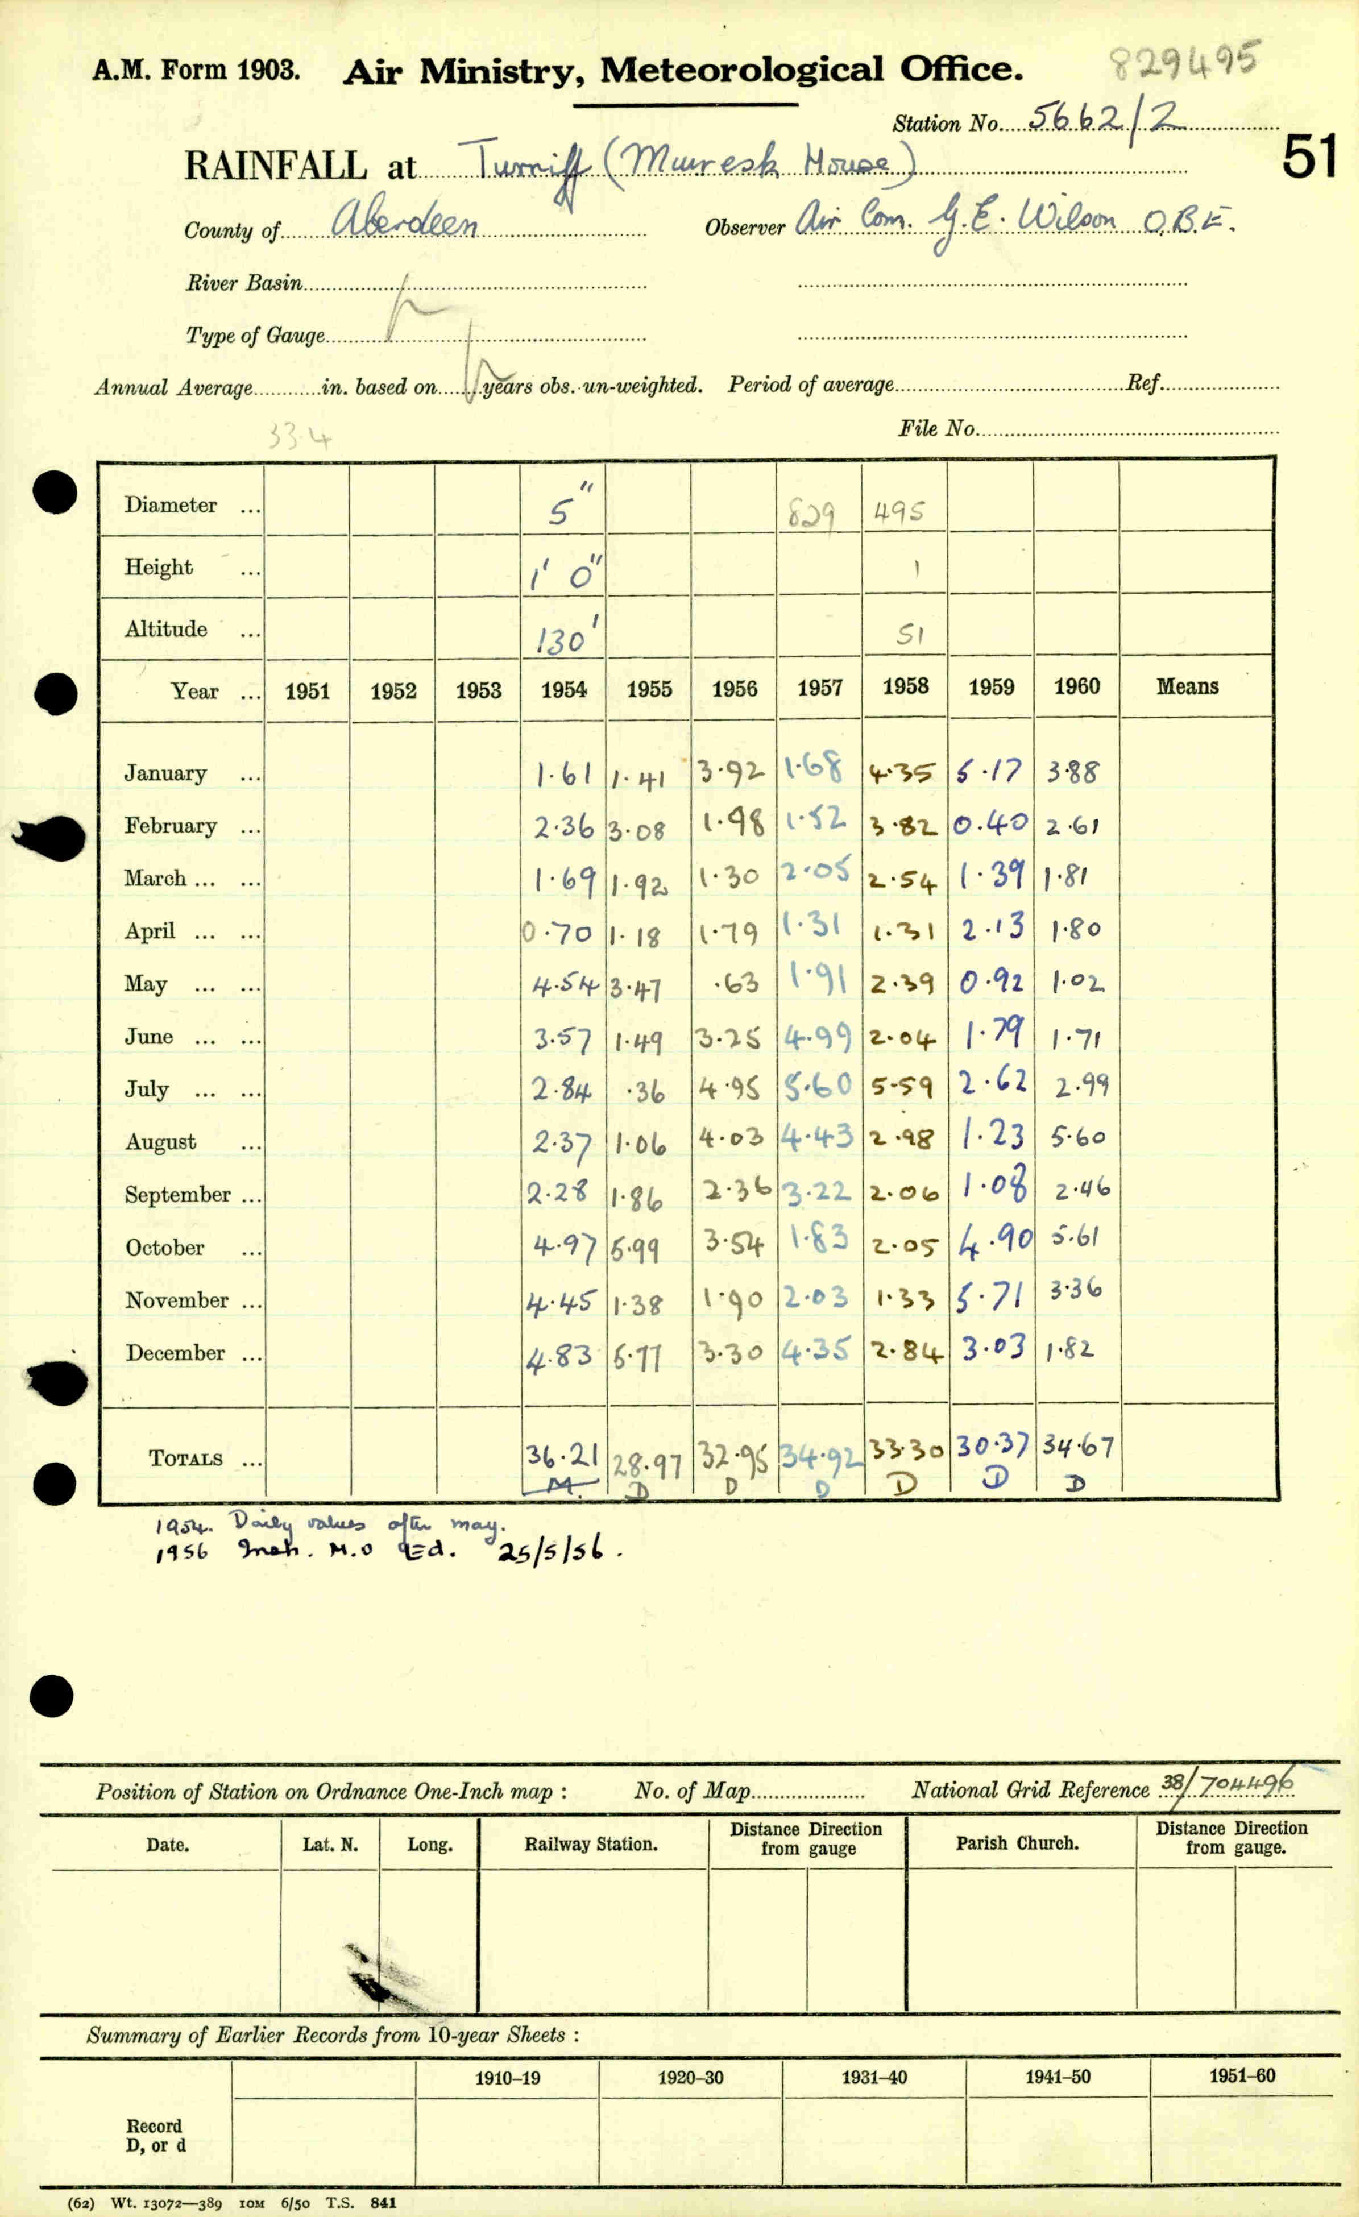 829495
A.M. Form 1903. Air Ministry, Meteorological Office.
Station No. 5662/2
51
RAINFALL at Turriff (Muiresk House)
County of Aberdeen Observer Air Com. G.E. Wilson O.B.E.
River Basin
Type of Gauge
Annual Average in. based on years obs. un-weighted. Period of average Ref.
334
File No.
Diameter ... 5" 829 495
Height ... 1' 0" 1
Altitude ... 130' 51
Year ... 1951 1952 1953 1954 1955 1956 1957 1958 1959 1960 Means
January ... 1.61 1.41 3.92 1.68 4.35 5.17 3.88
February ... 2.36 3.08 1.98 1.52 3.82 0.40 2.61
March ... ... 1.69 1.92 1.30 2.05 2.54 1.39 1.81
April ... ... 0.70 1.18 1.79 1.31 1.31 2.13 1.80
May ... ... 4.54 3.47 .63 1.91 2.39 0.92 1.02
June ... ... 3.57 1.49 3.25 4.99 2.04 1.79 1.71
July ... ... 2.84 .36 4.95 5.60 5.59 2.62 2.99
August ... 2.37 1.06 4.03 4.43 2.98 1.23 5.60
September ... 2.28 1.86 2.36 3.22 2.06 1.08 2.46
October ... 4.97 5.99 3.54 1.83 2.05 4.90 5.61
November ... 4.45 1.38 1.90 2.03 1.33 5.71 3.36
December ... 4.83 5.77 3.30 4.35 2.84 3.03 1.82
TOTALS ... 36.21 28.97 32.95 34.92 33.30 30.37 34.67
M. D D D D D D
1954. Daily values after may.
1956 Insh. M.O Ed. 25/5/56.
Position of Station on Ordnance One-Inch map : No. of Map National Grid Reference 38/704496
Date. Lat. N. Long. Railway Station. Distance Direction from gauge Parish Church. Distance Direction from gauge.
Summary of Earlier Records from 10-year Sheets :
1910–19 1920–30 1931–40 1941–50 1951–60
Record
D, or d
(62) Wt. 13072—389 10M 6/50 T.S. 841